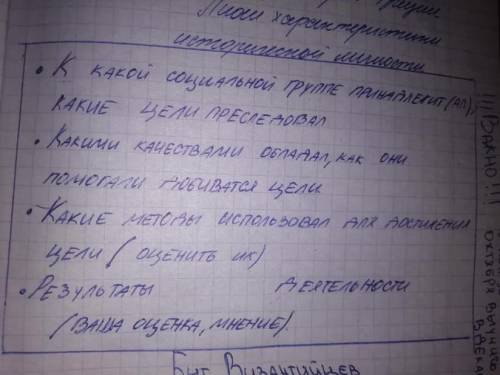 План характеристики
исторической личности
• К какой социальной группе принадлежит(ал),
какие цели преследовал
• Какими качествами обладал, как они
помогали добиватся цели
• Какие методы использовал для достижения
цели (оценить их)
• Результаты деятельности
(ваша оценка, мнение).
Быт Византийцев
!!! Важно !!!